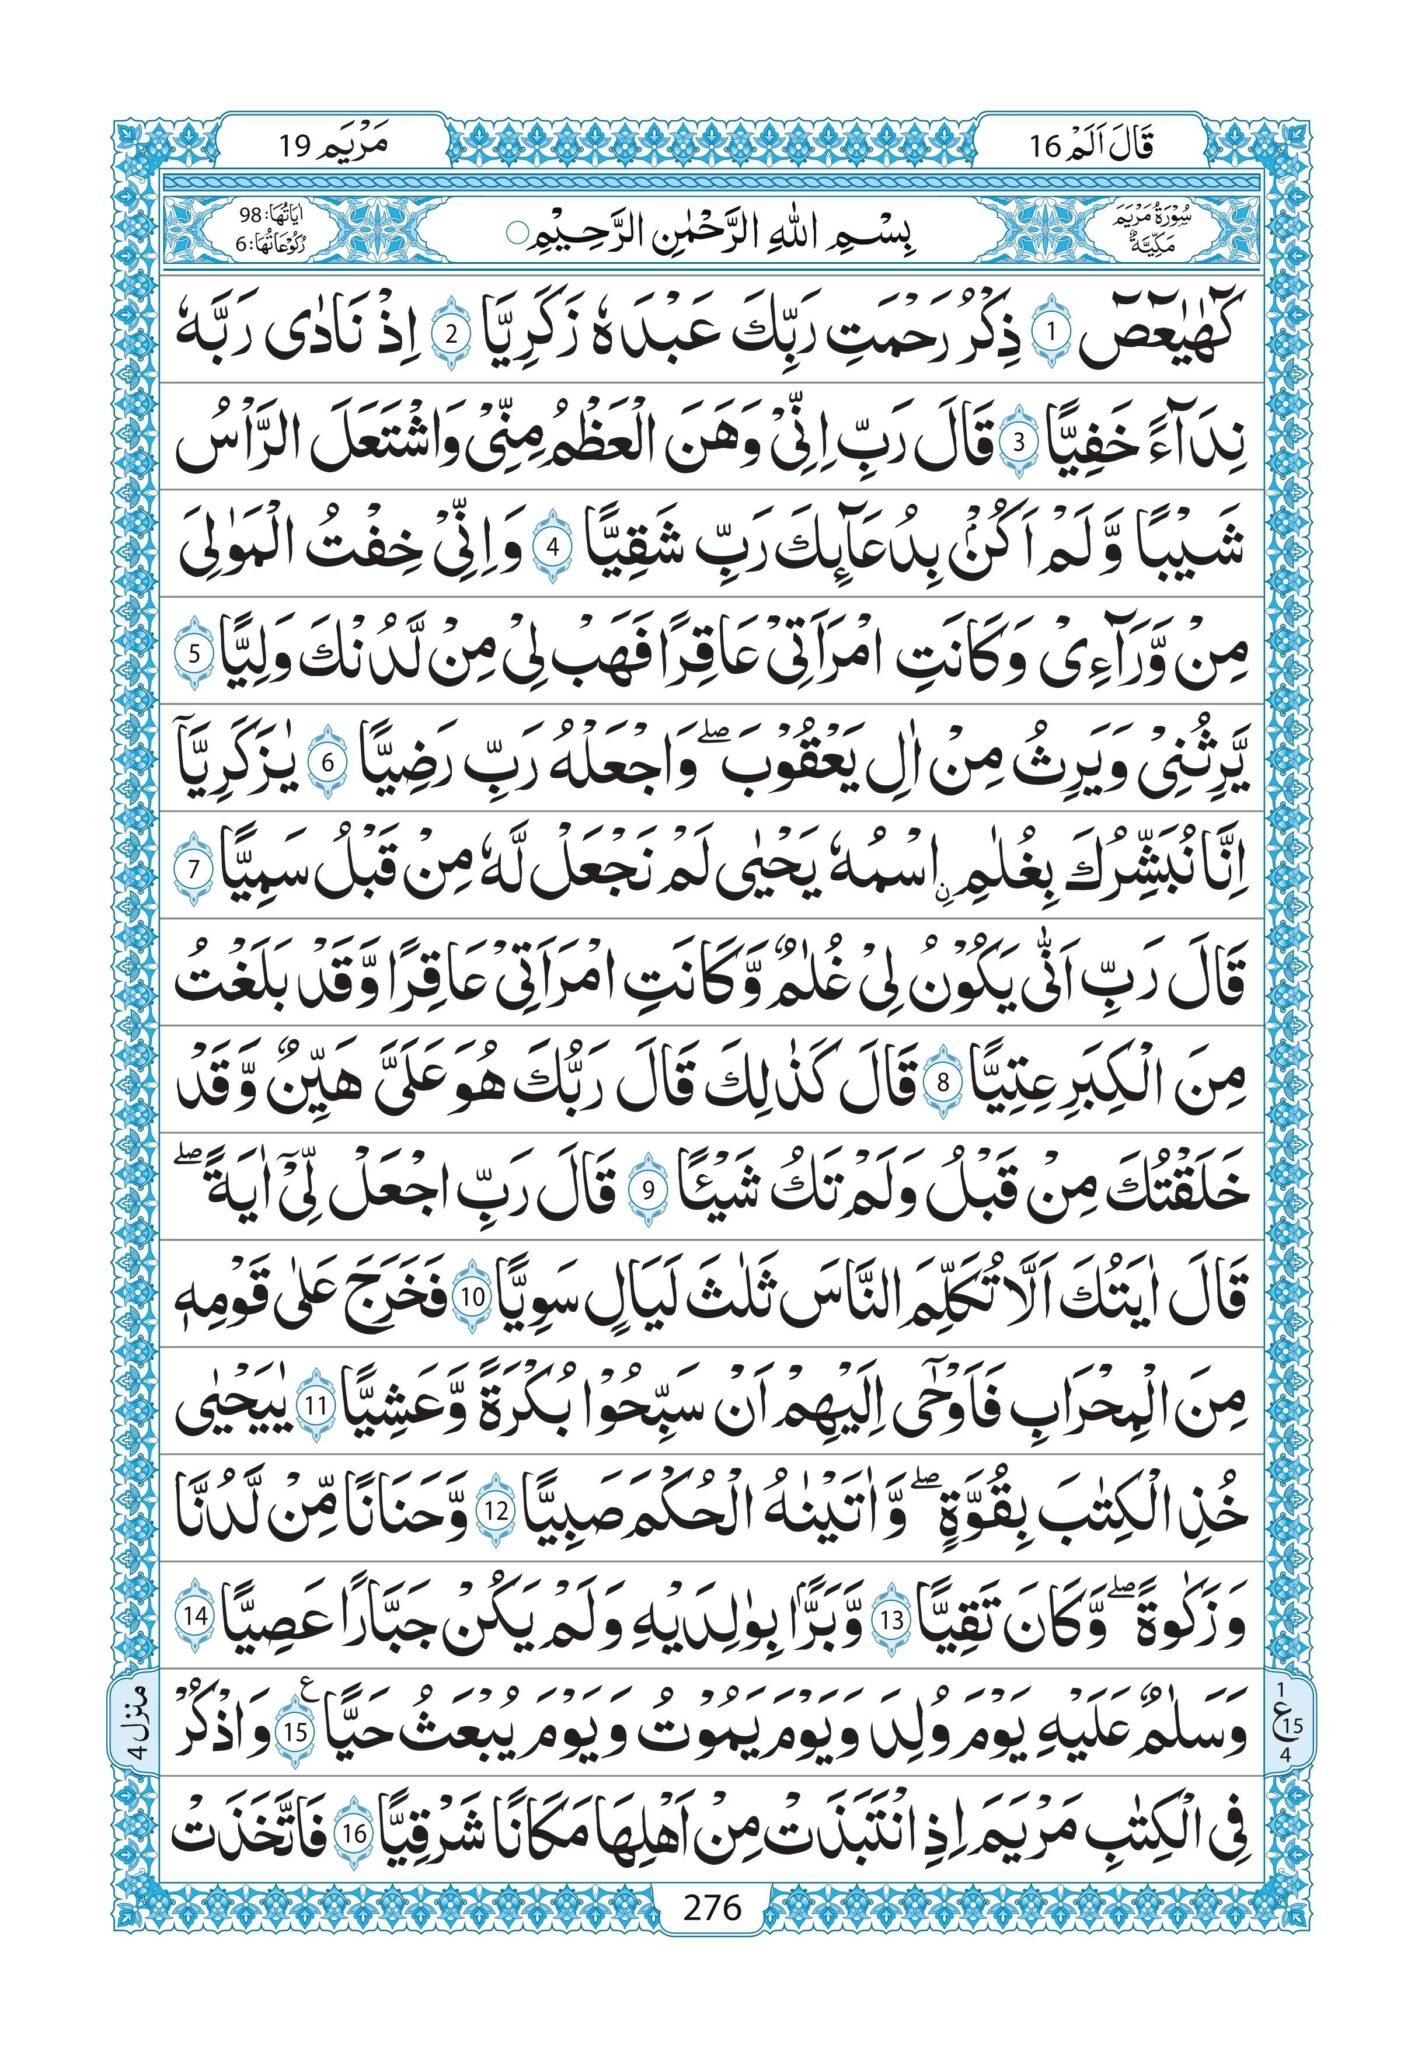 قَالَ اَلَمْ 16
مَرْيَم 19
سُوْرَةُ مَرْيَمَ مَكِّيَّةٌ
بِسْمِ اللّٰهِ الرَّحْمٰنِ الرَّحِيْمِ
اٰيَاتُهَا: 98 رُكُوْعَاتُهَا: 6
كٓهٰيٰعٓصٓ 1 ذِكْرُ رَحْمَتِ رَبِّكَ عَبْدَهٗ زَكَرِيَّا 2 اِذْ نَادٰى رَبَّهٗ
نِدَآءً خَفِيًّا 3 قَالَ رَبِّ اِنِّيْ وَهَنَ الْعَظْمُ مِنِّيْ وَاشْتَعَلَ الرَّاْسُ
شَيْبًا وَّلَمْ اَكُنْۢ بِدُعَآئِكَ رَبِّ شَقِيًّا 4 وَاِنِّيْ خِفْتُ الْمَوٰلِيَ
مِنْ وَّرَآءِيْ وَكَانَتِ امْرَاَتِيْ عَاقِرًا فَهَبْ لِيْ مِنْ لَّدُنْكَ وَلِيًّا 5
يَّرِثُنِيْ وَيَرِثُ مِنْ اٰلِ يَعْقُوْبَ ۖ وَاجْعَلْهُ رَبِّ رَضِيًّا 6 يٰزَكَرِيَّآ
اِنَّا نُبَشِّرُكَ بِغُلٰمِ نِ اسْمُهٗ يَحْيٰى لَمْ نَجْعَلْ لَّهٗ مِنْ قَبْلُ سَمِيًّا 7
قَالَ رَبِّ اَنّٰى يَكُوْنُ لِيْ غُلٰمٌ وَّكَانَتِ امْرَاَتِيْ عَاقِرًا وَّقَدْ بَلَغْتُ
مِنَ الْكِبَرِ عِتِيًّا 8 قَالَ كَذٰلِكَ قَالَ رَبُّكَ هُوَ عَلَيَّ هَيِّنٌ وَّقَدْ
خَلَقْتُكَ مِنْ قَبْلُ وَلَمْ تَكُ شَيْـًٔا 9 قَالَ رَبِّ اجْعَلْ لِّيْٓ اٰيَةً ۖ
قَالَ اٰيَتُكَ اَلَّا تُكَلِّمَ النَّاسَ ثَلٰثَ لَيَالٍ سَوِيًّا 10 فَخَرَجَ عَلٰى قَوْمِهٖ
مِنَ الْمِحْرَابِ فَاَوْحٰٓى اِلَيْهِمْ اَنْ سَبِّحُوْا بُكْرَةً وَّعَشِيًّا 11 يٰيَحْيٰى
خُذِ الْكِتٰبَ بِقُوَّةٍ ۖ وَّاٰتَيْنٰهُ الْحُكْمَ صَبِيًّا 12 وَّحَنَانًا مِّنْ لَّدُنَّا
وَزَكٰوةً ۖ وَّكَانَ تَقِيًّا 13 وَّبَرًّۢا بِوٰلِدَيْهِ وَلَمْ يَكُنْ جَبَّارًا عَصِيًّا 14
وَسَلٰمٌ عَلَيْهِ يَوْمَ وُلِدَ وَيَوْمَ يَمُوْتُ وَيَوْمَ يُبْعَثُ حَيًّا 15 ع وَاذْكُرْ
فِي الْكِتٰبِ مَرْيَمَ اِذِ انْتَبَذَتْ مِنْ اَهْلِهَا مَكَانًا شَرْقِيًّا 16 فَاتَّخَذَتْ
1 ع 15 4
منزل 4
276